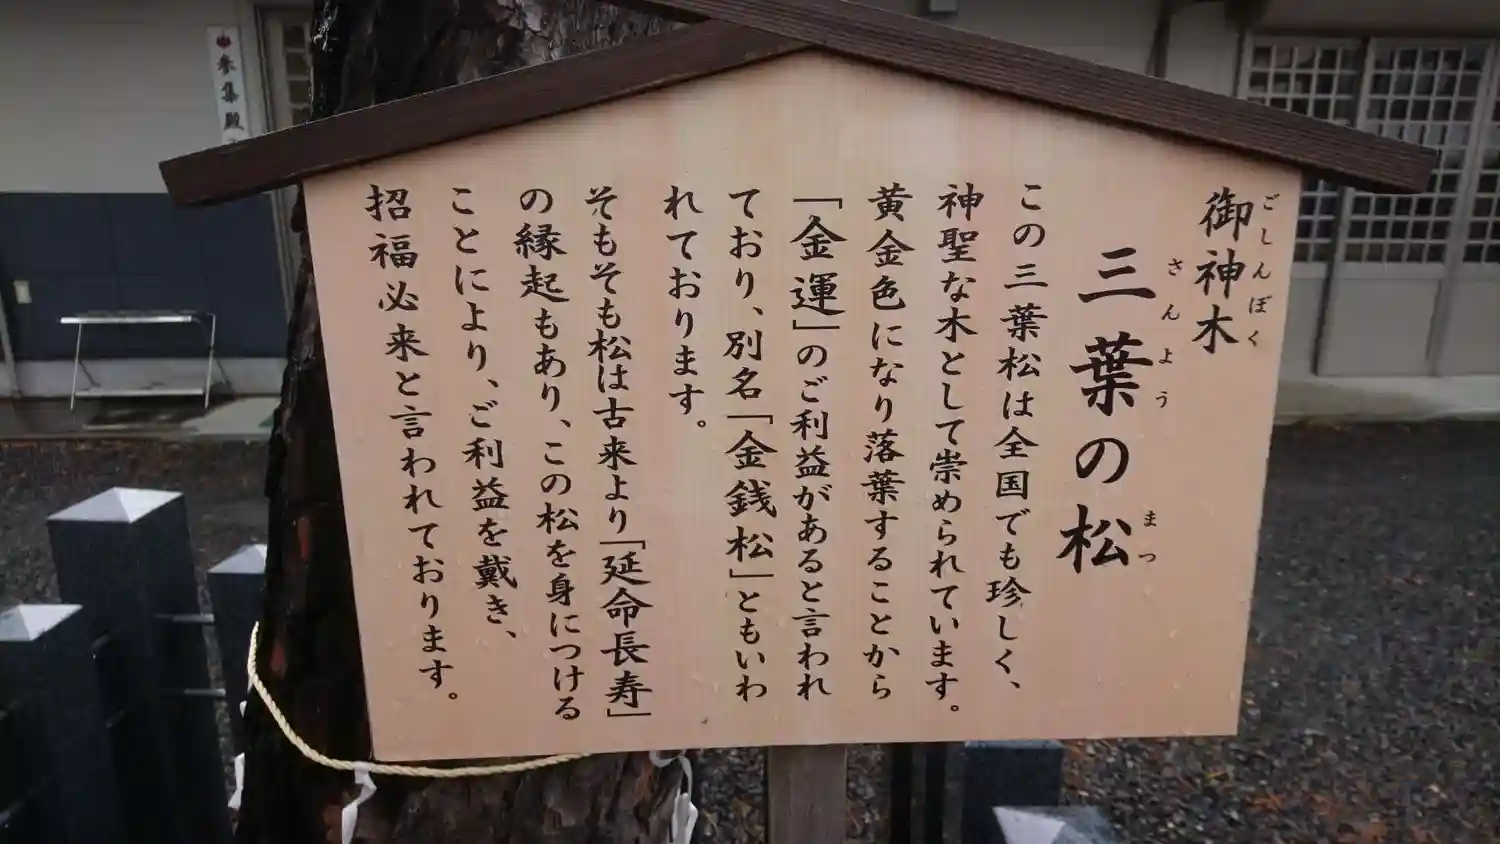 御神木
ごしんぼく
三葉の松
さんよう まつ
この三葉松は全国でも珍しく、
神聖な木として崇められています。
黄金色になり落葉することから
「金運」のご利益があると言われ
ており、別名「金銭松」ともいわ
れております。
そもそも松は古来より「延命長寿」
の縁起もあり、この松を身につける
ことにより、ご利益を戴き、
招福必来と言われております。
参集殿